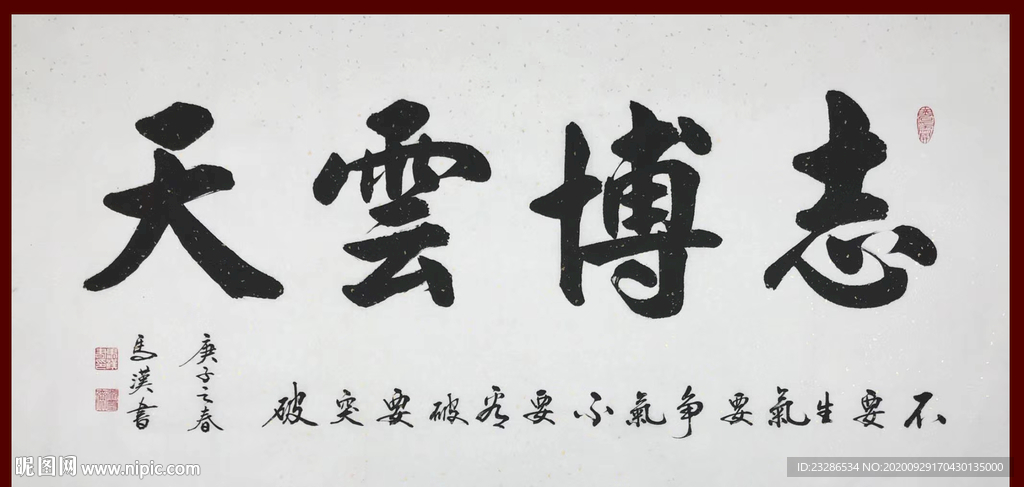 志博雲天
不要生氣要争氣不要看破要突破
庚子之春
馬漢書
昵图网 www.nipic.com
ID:23286534 NO:20200929170430135000